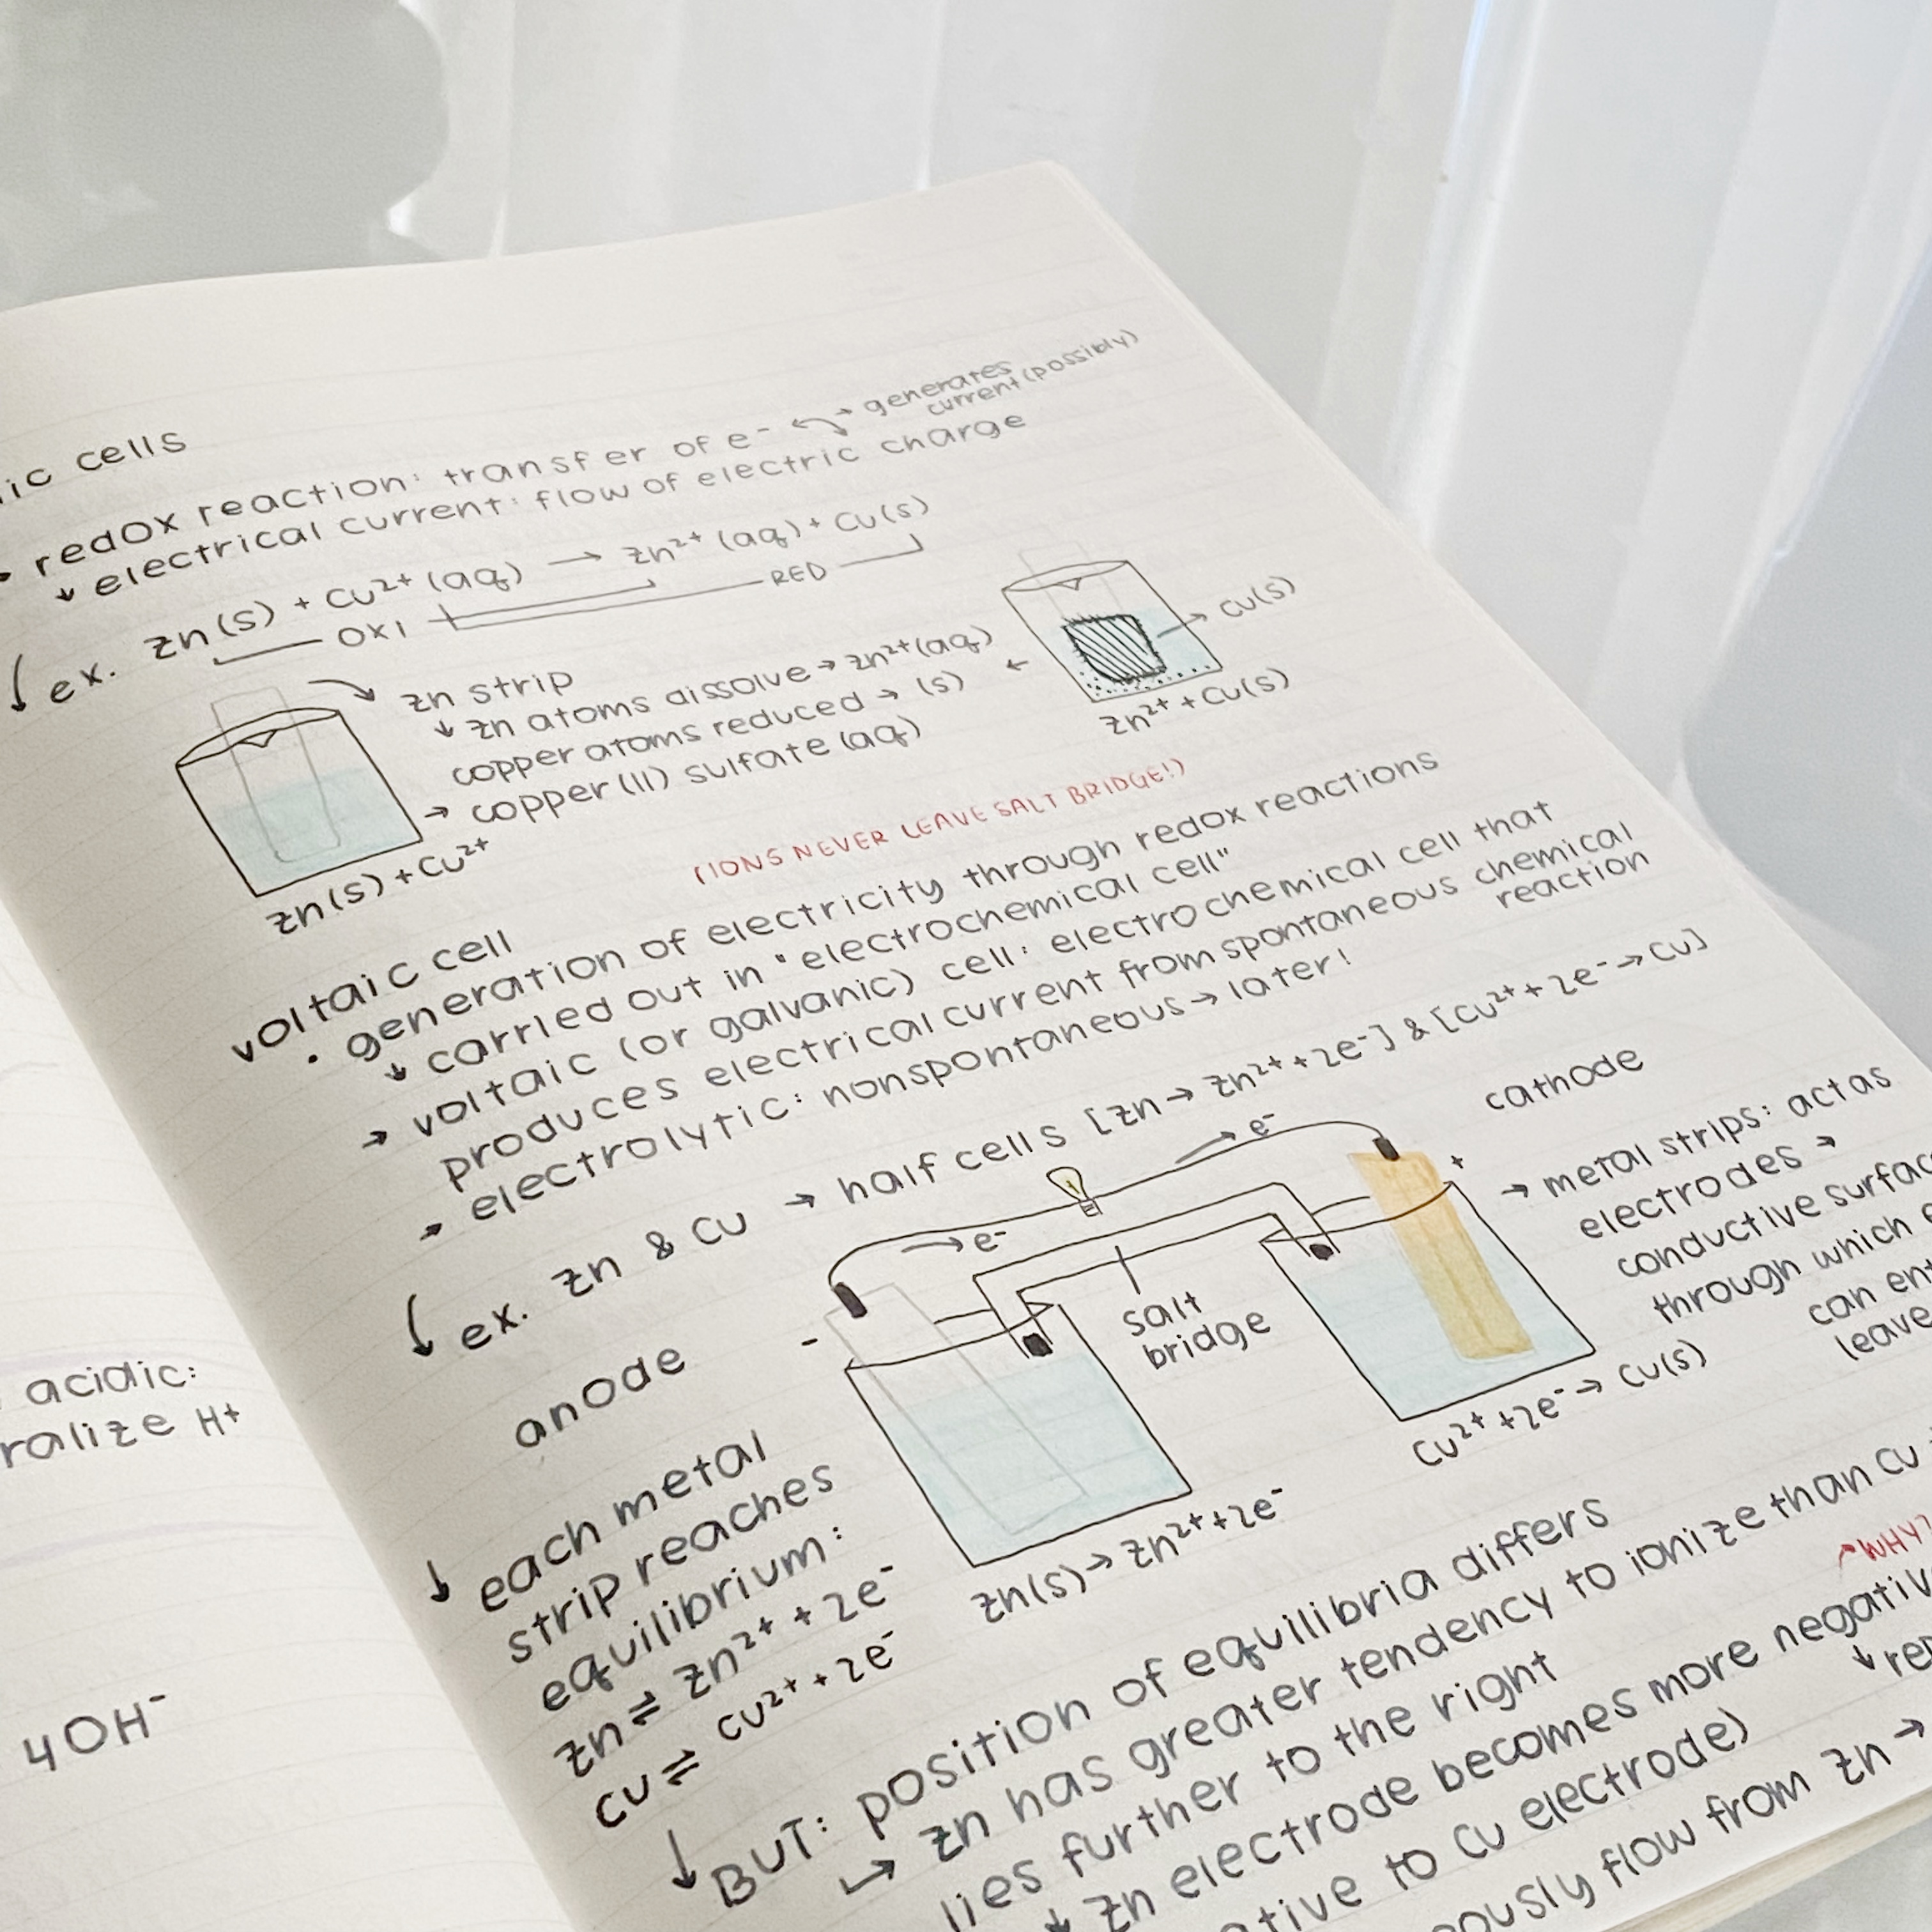 cells
redox reaction: transfer of e⁻ → generates current (possibly)
↓ electrical current: flow of electric charge
↓ ex. Zn(s) + Cu²⁺(aq) → Zn²⁺(aq) + Cu(s)
OXI
RED
Zn strip
↓ Zn atoms dissolve → Zn²⁺(aq)
copper atoms reduced → (s)
→ copper(II) sulfate (aq)
Zn(s) + Cu²⁺
← → Cu(s)
Zn²⁺ + Cu(s)
(IONS NEVER LEAVE SALT BRIDGE!)
voltaic cell
• generation of electricity through redox reactions
↓ carried out in "electrochemical cell"
→ voltaic (or galvanic) cell: electrochemical cell that
produces electrical current from spontaneous chemical
reaction
→ electrolytic: nonspontaneous → later!
↓ ex. Zn & Cu → half cells [Zn → Zn²⁺ + 2e⁻] & [Cu²⁺ + 2e⁻ → Cu]
anode
-
→ e⁻
→ e⁻
salt
bridge
cathode
+
→ metal strips: act as
electrodes →
conductive
through which
can
leave
Zn(s) → Zn²⁺ + 2e⁻
Cu²⁺ + 2e⁻ → Cu(s)
↓ each metal
strip reaches
equilibrium:
Zn ⇌ Zn²⁺ + 2e⁻
Cu ⇌ Cu²⁺ + 2e⁻
↓ BUT: position of equilibria differs
↳ Zn has greater tendency to ionize than Cu
lies further to the right
WHY?
↓ Zn electrode becomes more
to Cu electrode)
flow from Zn →
acidic:
H⁺
4OH⁻